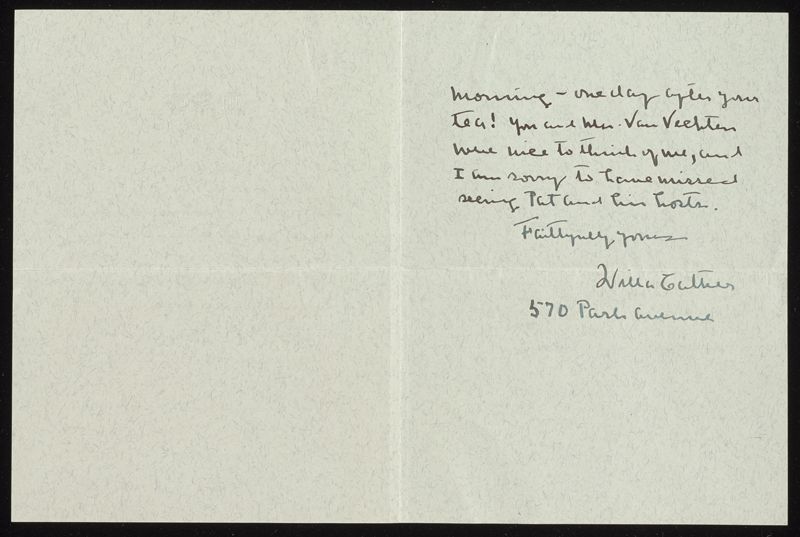 morning – one day after your
tea! You and Mrs. Van Vechten
were nice to think of me, and
I am sorry to have missed
seeing Pat and his hosts.
Faithfully yours
Willa Cather
570 Park Avenue